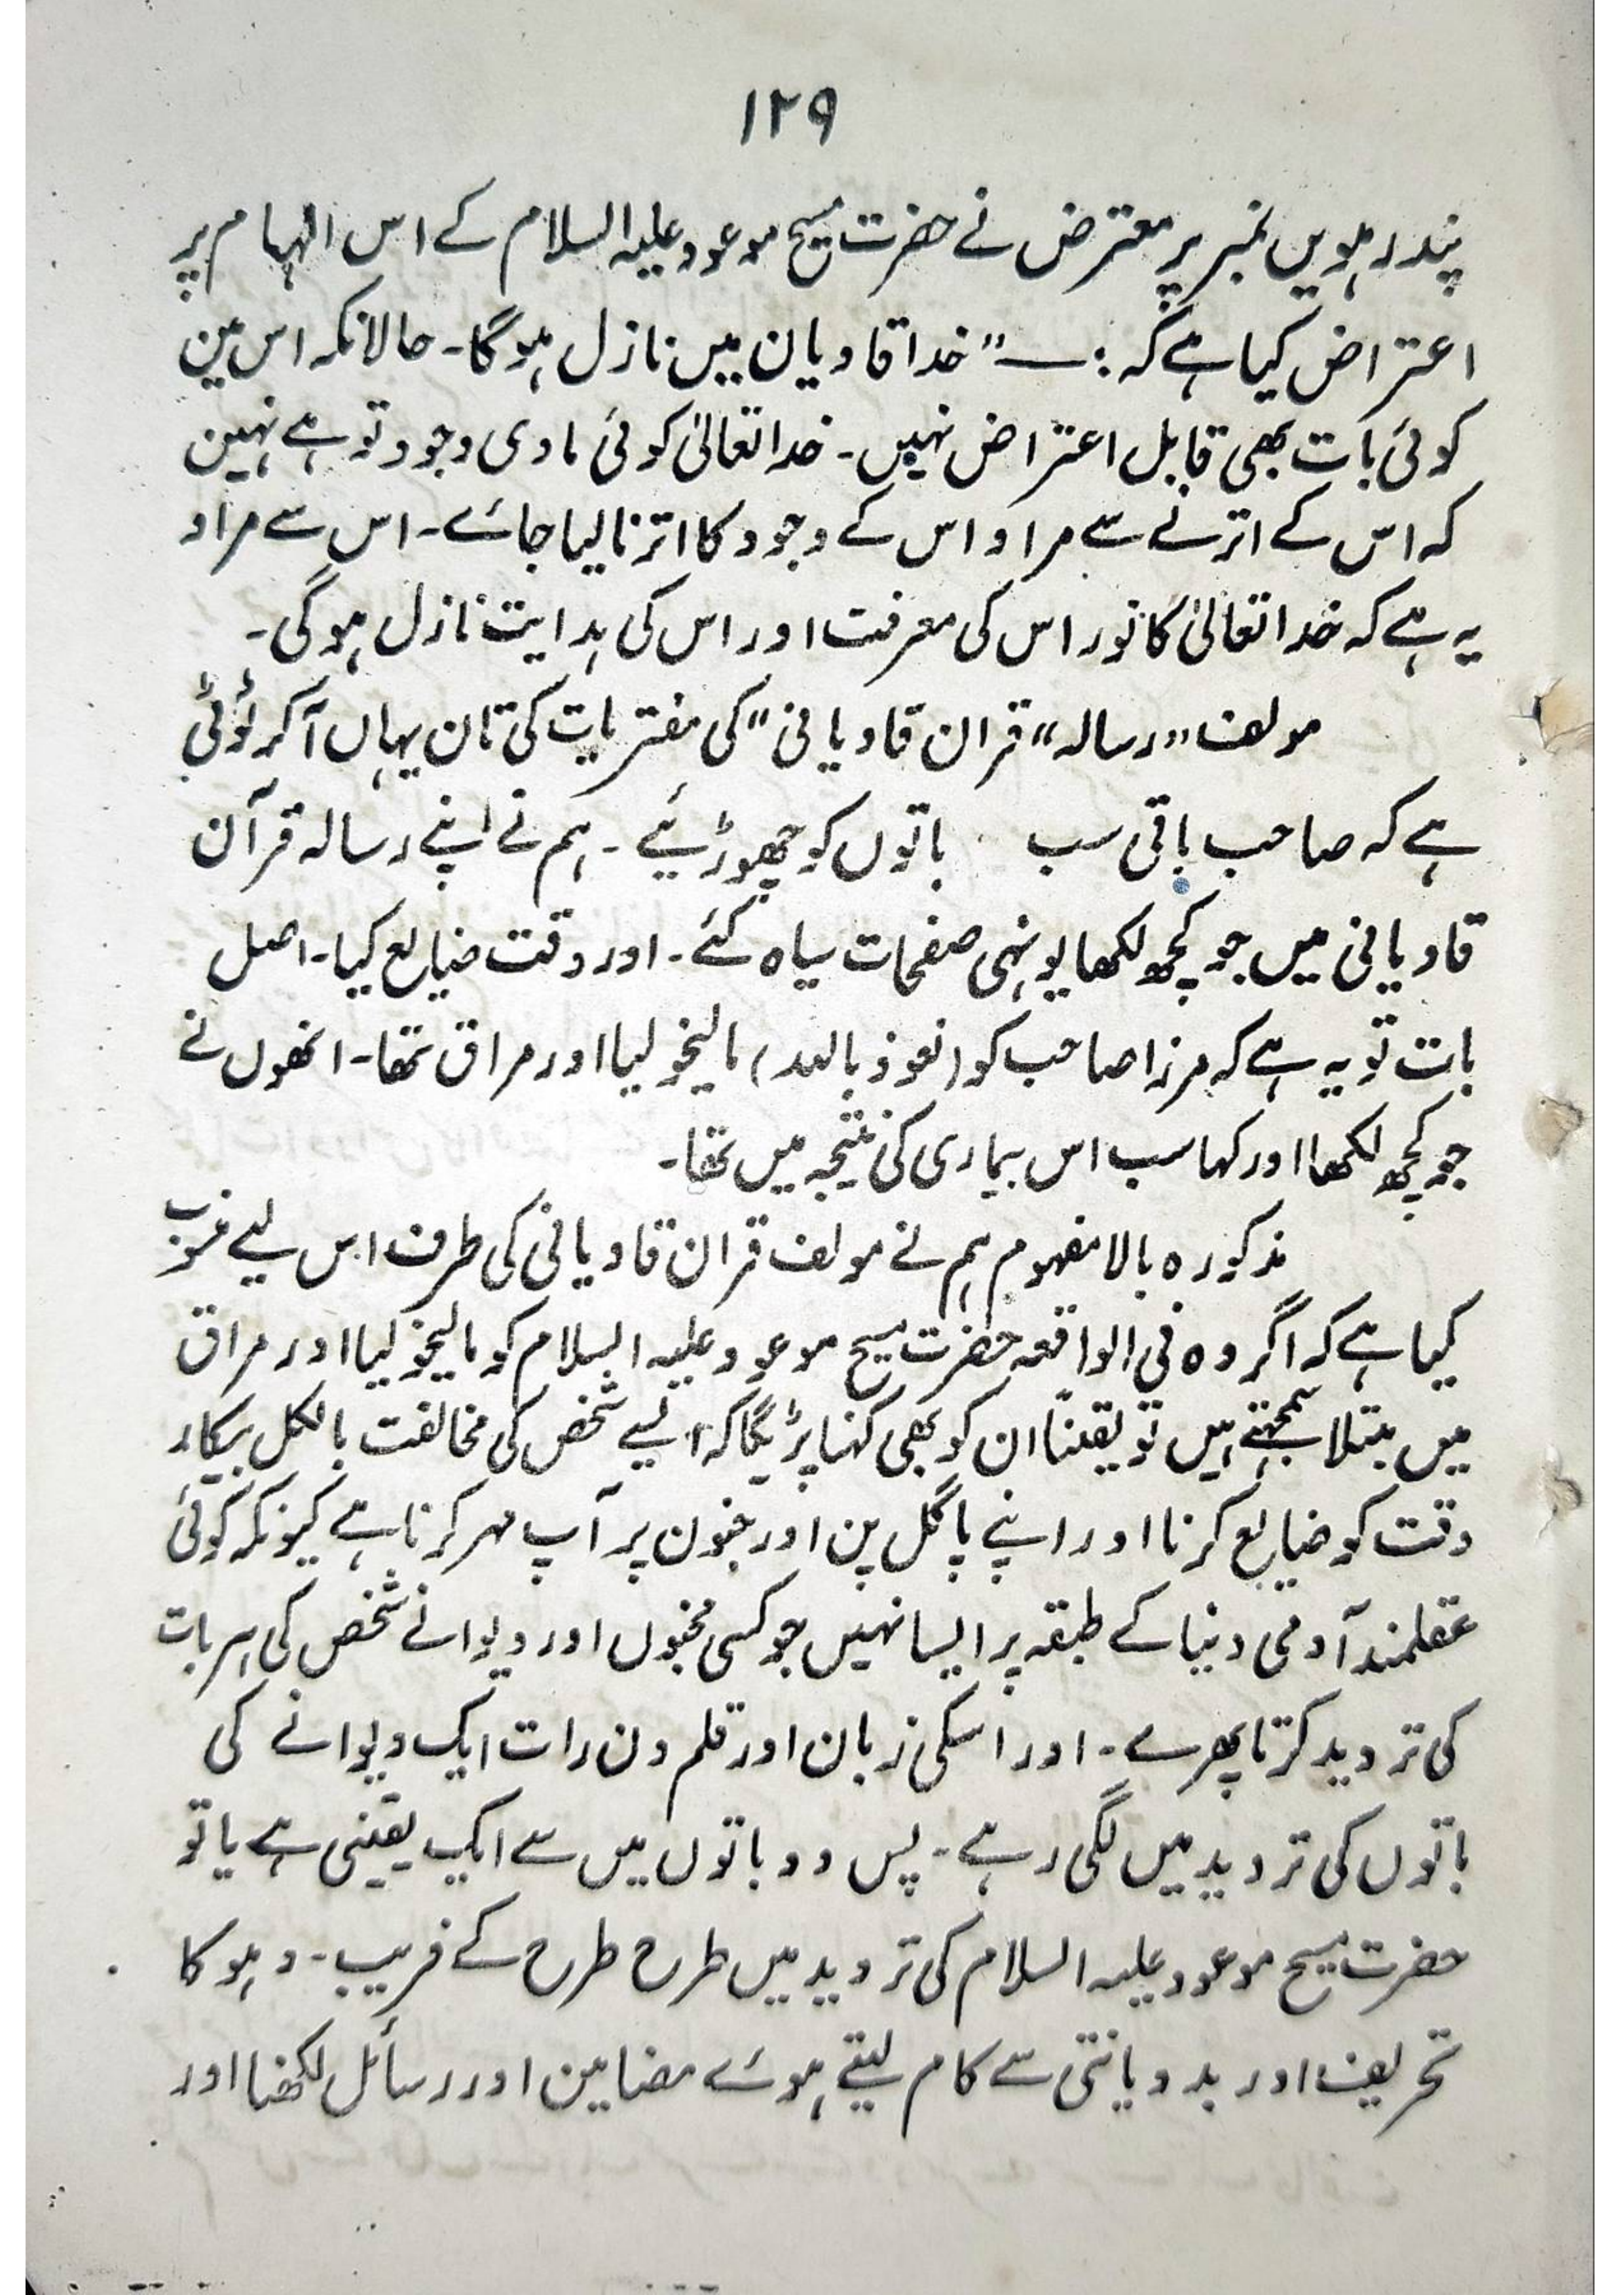 ۱۲۹
پندرہویں نمبر پر معترض نے حضرت مسیح موعود علیہ السلام کے اس الہام پر
اعتراض کیا ہے کہ :— " خدا قادیان میں نازل ہوگا۔ حالانکہ اس مین
کوئی بات بھی قابل اعتراض نہیں۔ خدا تعالیٰ کوئی مادی وجود تو ہے نہین
کہ اس کے اترنے سے مراد اس کے وجود کا اترنا لیا جائے۔ اس سے مراد
یہ ہے کہ خدا تعالیٰ کا نور اس کی معرفت اور اس کی ہدایت نازل ہوگی۔
مولف "رسالہ" قران قادیانی" کی مفتریات کی تان یہاں آکر ٹوٹی
ہے کہ صاحب باقی سب باتوں کو چھوڑئیے ۔ ہم نے اپنے رسالہ قرآن
قادیانی میں جو کچھ لکھا یونہی صفحات سیاہ کئے۔ اور وقت ضایع کیا۔ اصل
بات تو یہ ہے کہ مرزا صاحب کو (نعوذ باللہ) مالیخولیا اور مراق تھا۔ انھوں نے
جو کچھ لکھا اور کہا سب اس بیماری کی نتیجہ میں تھا۔
مذکورہ بالا مفہوم ہم نے مولف قران قادیانی کی طرف اس لیے
کیا ہے کہ اگر وہ فی الواقعہ حضرت مسیح موعود علیہ السلام کو مالیخولیا اور مراق
میں مبتلا سمجھتے ہیں تو یقیناً ان کو بھی کہنا پڑیگا کہ ایسے شخص کی مخالفت بالکل بیکار
وقت کو ضایع کرنا اور اپنے پاگل پن اور جنون پر آپ مہر کرنا ہے کیونکہ کوئی
عقلمند آدمی دنیا کے طبقہ پر ایسا نہیں جو کسی مجنوں اور دیوانے شخص کی ہر بات
کی تردید کرتا پھرے۔ اور اسکی زبان اور قلم دن رات ایک دیوانے کی
باتوں کی تردید میں لگی رہے۔ پس دو باتوں میں سے ایک یقینی ہے یا تو
حضرت مسیح موعود علیہ السلام کی تردید میں طرح طرح کے فریب۔ دہوکا
تحریف اور بددیانتی سے کام لیتے ہوئے مضامین اور رسائل لکھنا اور